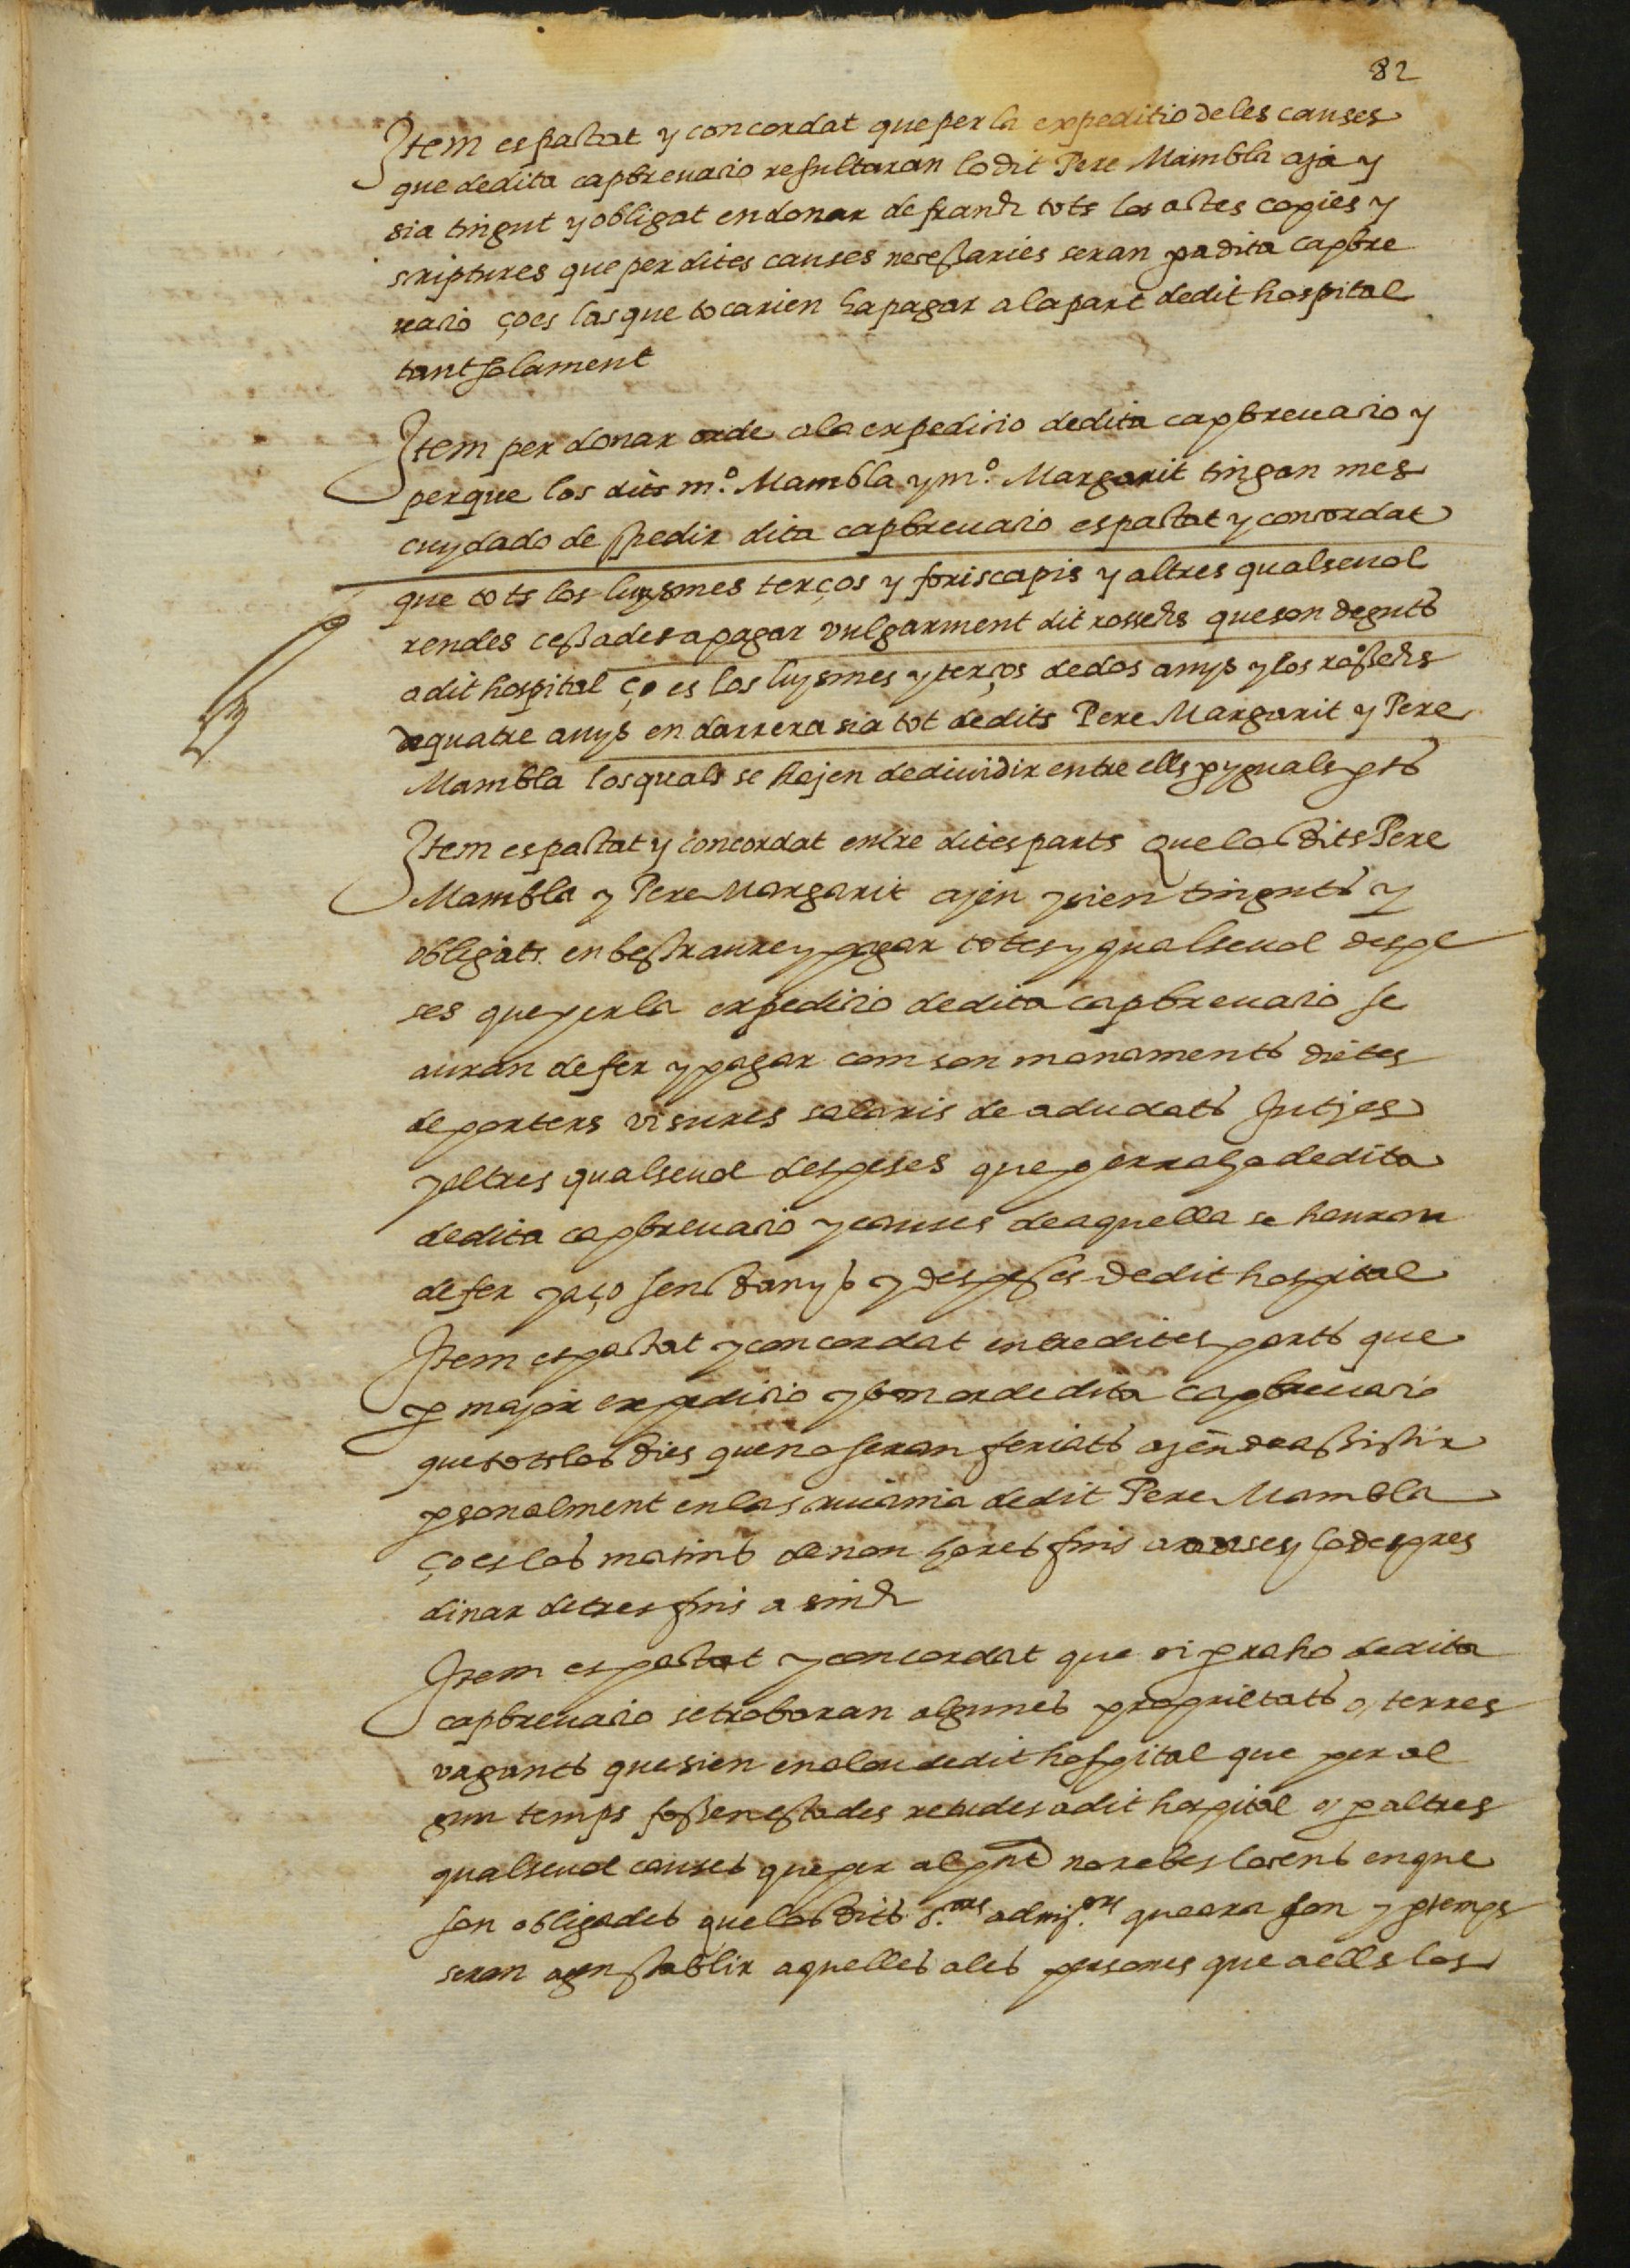 82
Item es pactat y concordat que per la expeditio de les causes
que de dita capbrevacio resultaran lo dit Pere Mambla aja y
sia tingut y obligat en donar de franch tots los actes copies y
scriptures que per dites causes necessaries seran pa dita capbre
vacio ço es las que tocarien ha pagar a la part de dit hospital
tant solament
Item per donar orde a la expedicio de dita capbrevacio y
perque los dits m.º Mambla y m.º Margarit tingan mes
cuydado de spedir dita capbrevacio es pactat y concordat
que tots los luysmes terços y foriscapis y altres qualsevol
rendes cessades a pagar vulgarment dit rossechs que son deguts
a dit hospital ço es los luysmes y terços de dos anys y los rossechs
de quatre anys en darrera sia tot de dits Pere Margarit y Pere
Mambla los quals se hajen de dividir entre ells p yguals pts
Item es pactat y concordat entre dites parts que los dits Pere
Mambla y Pere Margarit ajen y sien tinguts y
obligats en bestraure y pagar totes y qualsevol despe
ses que per la expedicio de dita capbrevacio se
auran de fer y pagar com son manaments dietes
de porters visures salaris de aduocats Jutjes
y altres qualsevol despeses que per raho de dita
de dita capbrevacio y causes de aquella se hauran
de fer y aço sens danys y despeses de dit hospital
Item es pactat y concordat entre dites parts que
p major expedicio y bon orde de dita capbrevacio
que tots los dies que no seran feriats ajen de assistir
psonalment en la scrivania de dit Pere Mambla
ço es los matins de nou hores fins a onse y lo despres
dinar de tres fins a sinch
Item es pactat y concordat que si p raho de dita
capbrevacio se trobaran algunes proprietats o terres
vagants que sien en alou de dit hospital que per al
gun temps fossen estades retudes a dit hospital o p altres
qualsevol causes que per al pnt no rebes los cens en que
son obligades que los dits s.ors admj.ors que ara son y p temps
seran ajen stablir aquelles a les persones que a ells los